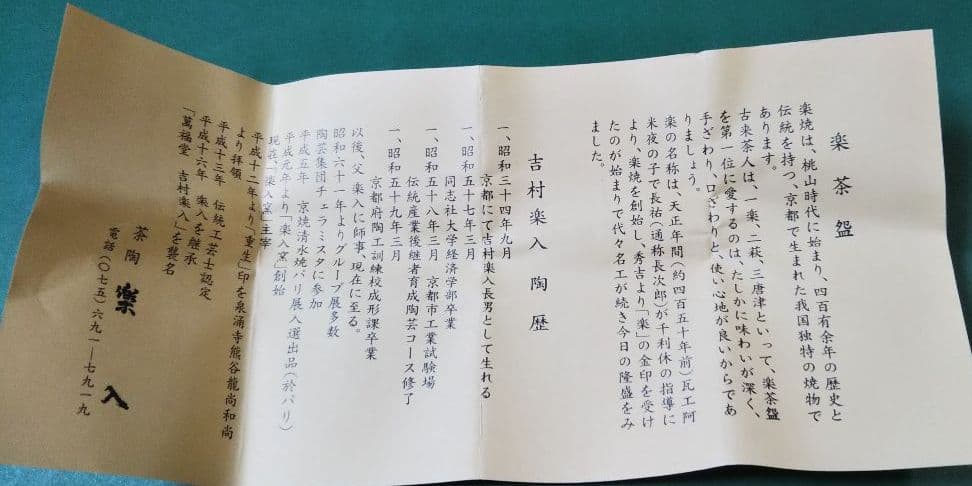 楽茶盌
楽焼は、桃山時代に始まり、四百有余年の歴史と
伝統を持つ、京都で生まれた我国独特の焼物で
あります。
古来茶人は、一楽、二萩、三唐津といって、楽茶盌
を第一位に愛するのは、たしかに味わいが深く、
手ざわり、口ざわりと、使い心地が良いからであ
りましょう。
楽の名称は、天正年間(約四百五十年前)瓦工阿
米夜の子で長祐(通称長次郎)が千利休の指導に
より、楽焼を創始し、秀吉より「楽」の金印を受け
たのが始まりで代々名工が続き今日の隆盛をみ
ました。
吉村楽入 陶歴
一、昭和三十四年九月
京都にて吉村楽入長男として生れる
一、昭和五十七年三月
同志社大学経済学部卒業
一、昭和五十八年三月 京都市工業試験場
伝統産業後継者育成陶芸コース修了
一、昭和五十九年三月
京都府陶工訓練校成形課卒業
以後、父 楽入に師事、現在に至る。
昭和六十一年よりグループ展多数
陶芸集団チェラミスタに参加
平成五年 京焼清水焼パリ展入選出品(於パリ)
平成元年より「楽入窯」創始
現在、「楽入窯」主宰
平成十二年より「重生」印を泉涌寺熊谷龍尚和尚
より拝領
平成十三年 伝統工芸士認定
平成十六年 楽入を継承
「萬福堂 吉村楽入」を襲名
茶陶 楽入
電話(〇七五)六九一―七九一九